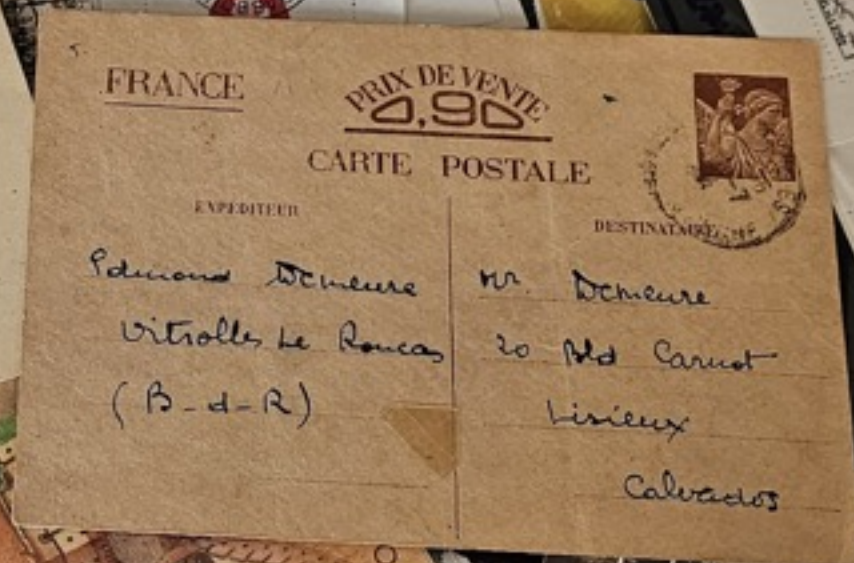 FRANCE
PRIX DE VENTE
0,90
CARTE POSTALE
EXPÉDITEUR
Edmond Demeure
Vitrolles Le Roucas
(B-d-R)
DESTINATAIRE
Mr. Demeure
20 Bld Carnot
Lisieux
Calvados